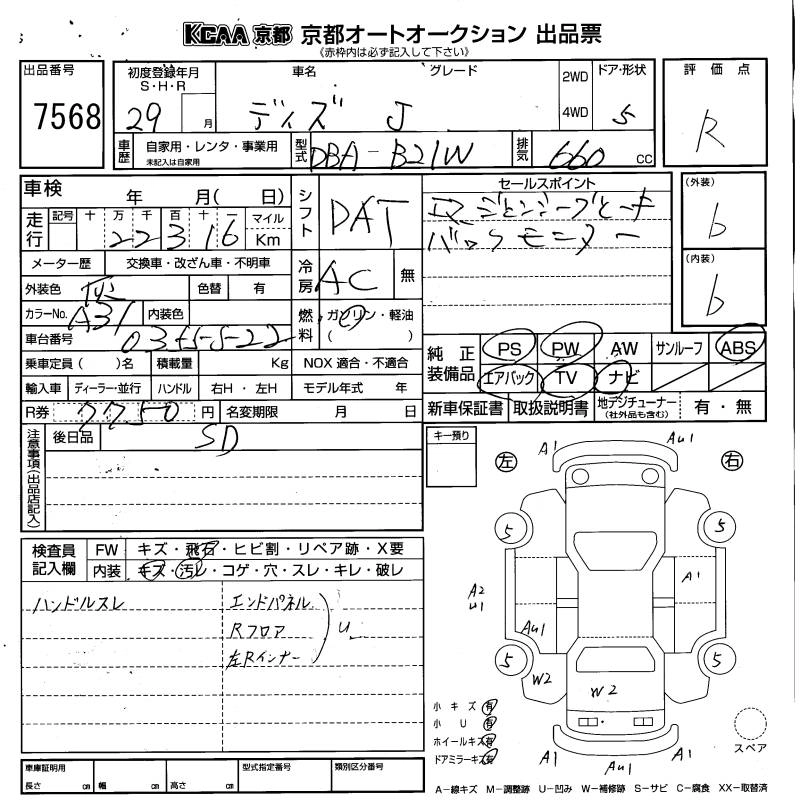 KCAA 京都 京都オートオークション 出品票
《赤枠内は必ず記入して下さい》
出品番号
7568
初度登録年月
S・H・R
29 月
車名
グレード
デイズ J
2WD
4WD
ドア・形状
5
評価点
R
車歴
自家用・レンタ・事業用
未記入は自家用
型式
DBA-B21W
排気
660 cc
車検 年 月( 日)
走行
記号 十 万 千 百 十 一 マイル
22316 Km
シフト
DAT
セールスポイント
バックモニター
(外装)
6
(内装)
6
メーター歴 交換車・改ざん車・不明車
冷房
AC 無
外装色
色替 有
カラーNo.
A31
内装色
燃料
ガソリン・軽油
( )
車台番号
0355522
乗車定員( )名 積載量 Kg NOX 適合・不適合
輸入車 ディーラー・並行 ハンドル 右H・左H モデル年式 年
R券 7750 円 名変期限 月 日
純正装備品
PS PW AW サンルーフ ABS
エアバック TV ナビ
新車保証書 取扱説明書 地デジチューナー
(社外品も含む)
有・無
注意事項(出品店記入)
後日品
SD
キー預り
左
右
A1
AU1
5
5
A1
A2
U1
AU1
5
5
W2
W2
検査員記入欄
FW キズ・飛石・ヒビ割・リペア跡・X要
内装 キズ・汚レ・コゲ・穴・スレ・キレ・破レ
ハンドルスレ
エンドパネル
Rフロア
左Rインナー
U
小キズ 有
小 U 有
ホイールキズ 有
ドアミラーキズ 有
A1
AU1
A1
スペア
車庫証明用
長さ cm 幅 cm 高さ cm
型式指定番号
類別区分番号
A−線キズ M−調整跡 U−凹み W−補修跡 S−サビ C−腐食 XX−取替済